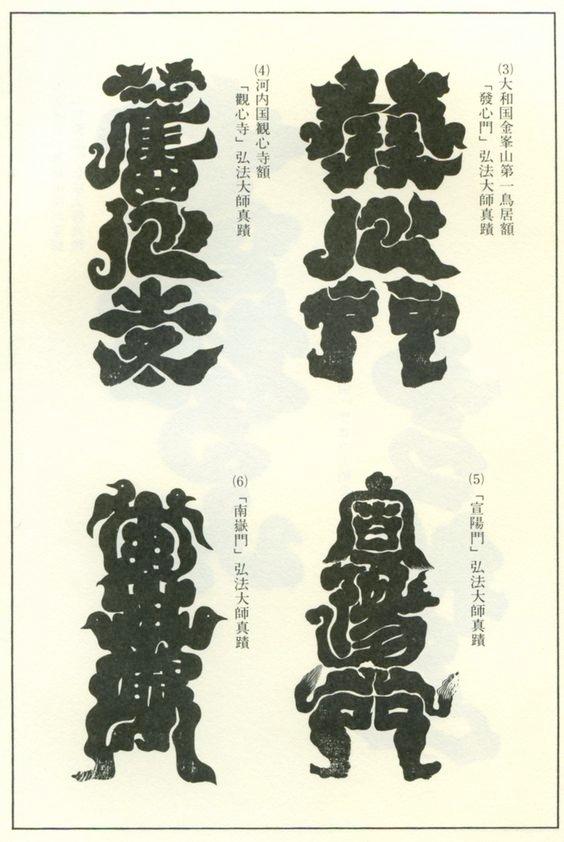 (3)大和国金峯山第一鳥居額
「發心門」弘法大師真蹟
發心門
(4)河内国観心寺額
「觀心寺」弘法大師真蹟
觀心寺
(5)「宣陽門」弘法大師真蹟
宣陽門
(6)「南嶽門」弘法大師真蹟
南嶽門